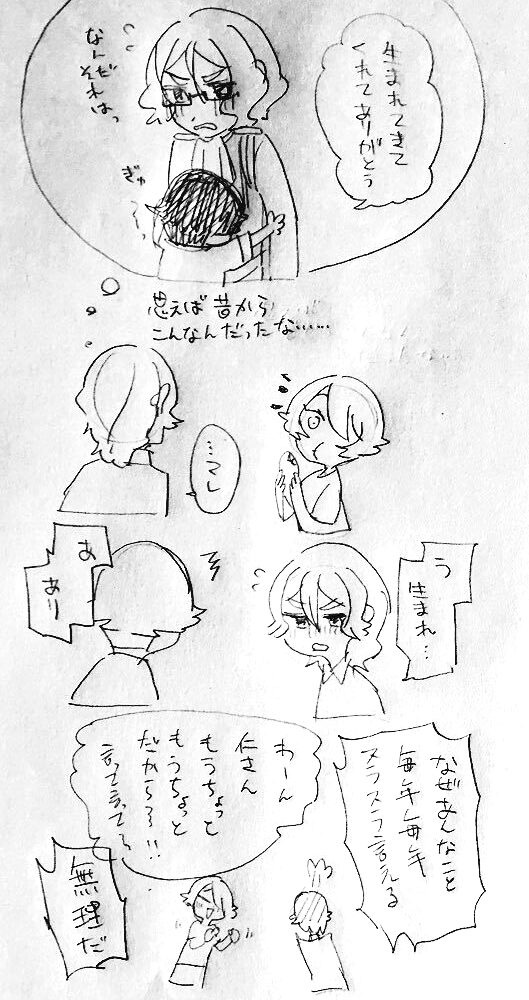 生まれてきて
くれてありがとう
なんだ
それはっ
ぎゅ
思えば昔から
こんなんだったな……
…マレ
う
生まれ…
あ
あり
なぜあんなこと
毎年毎年
スラスラ言える
わーん
仁さん
もうちょっと
もうちょっと
だから〜!!
言って言って〜
無理だ